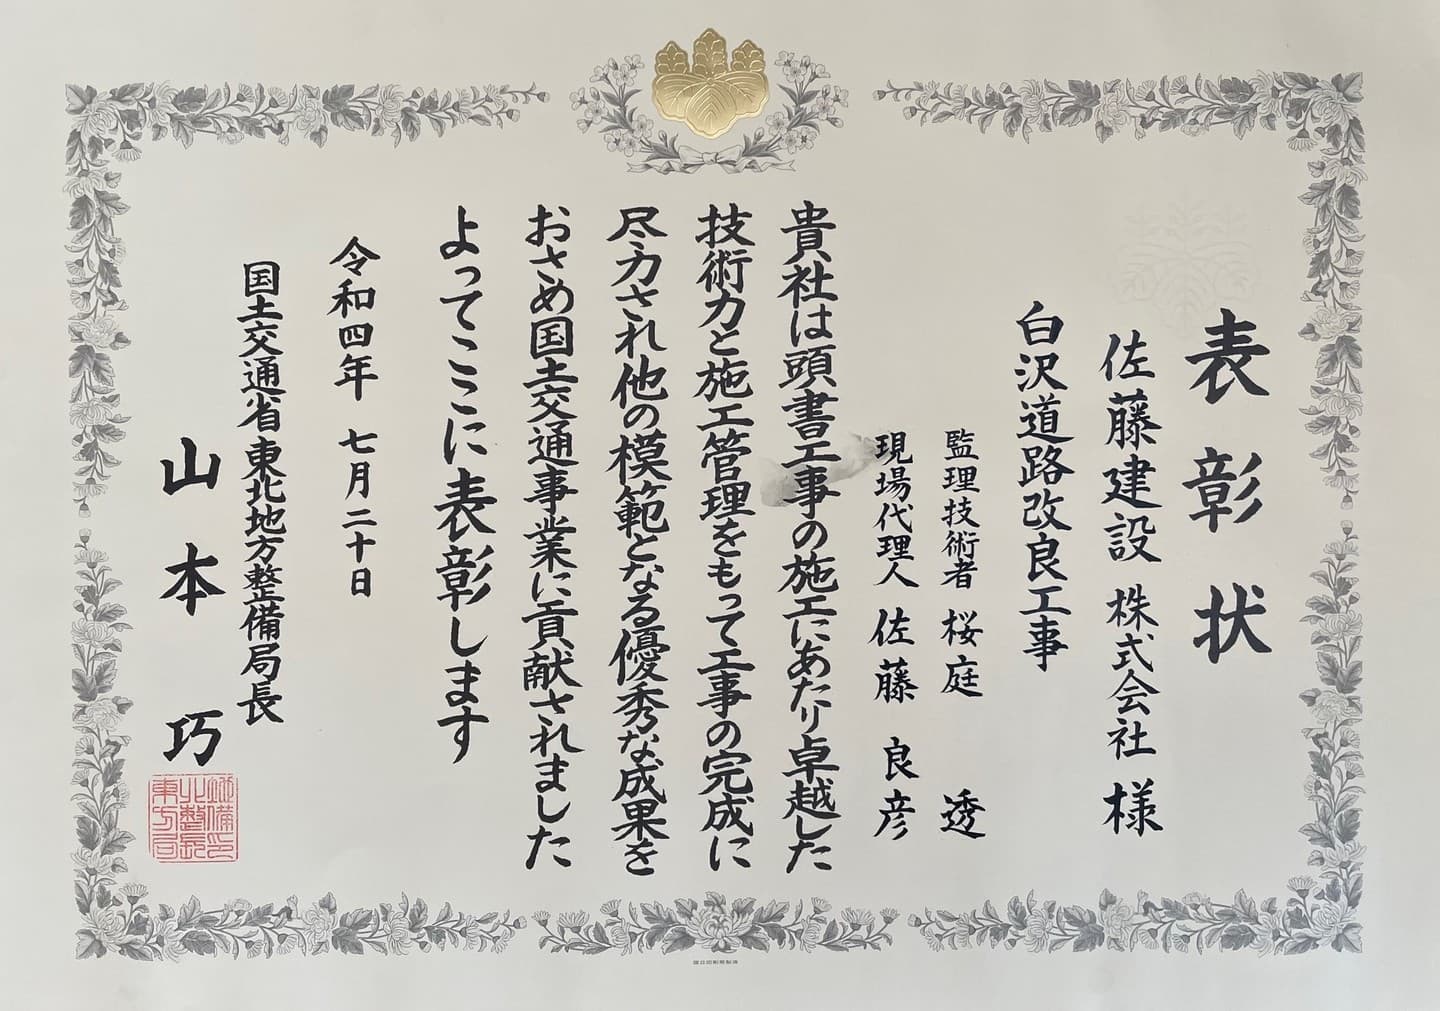 表彰状
佐藤建設株式会社様
白沢道路改良工事
監理技術者 桜庭 透
現場代理人 佐藤 良彦
貴社は頭書工事の施工にあたり卓越した
技術力と施工管理をもって工事の完成に
尽力され他の模範となる優秀な成果を
おさめ国土交通事業に貢献されました
よってここに表彰します
令和四年 七月二十日
国土交通省東北地方整備局長
山本 巧